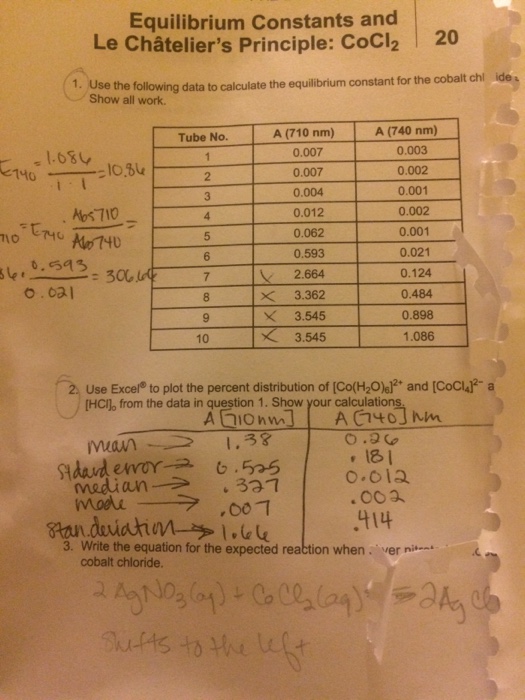 Equilibrium Constants and
Le Châtelier's Principle: CoCl₂ 20
1. Use the following data to calculate the equilibrium constant for the cobalt chl ide
Show all work.
Tube No. A (710 nm) A (740 nm)
1 0.007 0.003
2 0.007 0.002
3 0.004 0.001
4 0.012 0.002
5 0.062 0.001
6 0.593 0.021
7 2.664 0.124
8 3.362 0.484
9 3.545 0.898
10 3.545 1.086
E740 = 1.086 / 1·1 = 10.86
710 = E740 · Abs 710 / Abs 740 =
86 · 0.593 / 0.021 = 306.66
2. Use Excel® to plot the percent distribution of [Co(H₂O)₆]²⁺ and [CoCl₄]²⁻ a
[HCl]₀ from the data in question 1. Show your calculations.
A [710nm] A [740] nm
mean → 1.38 0.26
Stdard error → 0.525 .181
median → .327 0.012
Mode → .007 .002
Stan. deviation → 1.66 .414
3. Write the equation for the expected reaction when ver
cobalt chloride.
2 AgNO₃(aq) + CoCl₂(aq) 2Ag
Shifts to the left